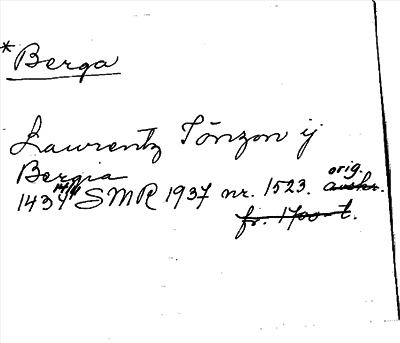 *Berga
Laurentz Tönzon ij
Bergia
1434 14/4 SMR 1937 nr. 1523. orig. avskr.
fr. 1700-t.